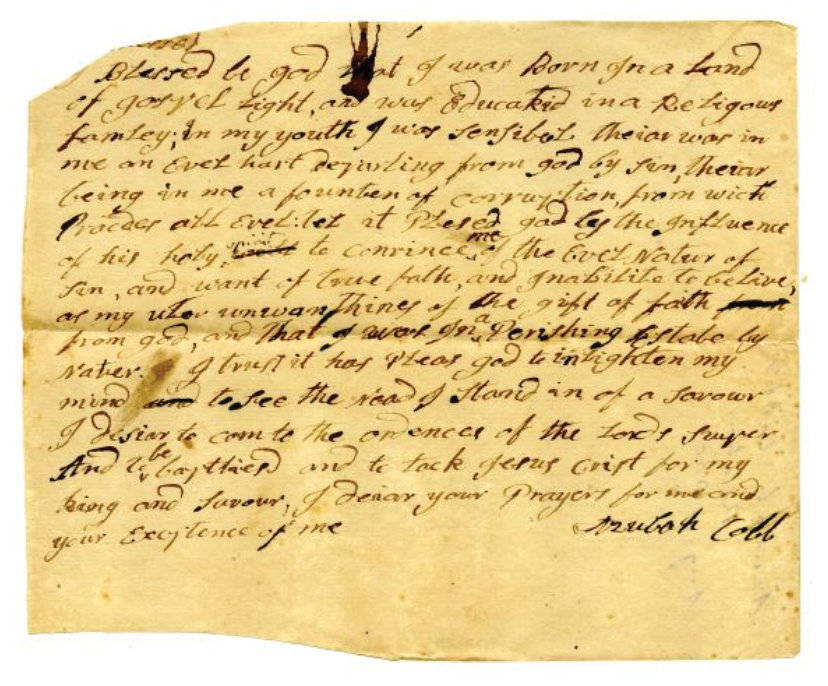 I Blessed be god that I was Born In a Land
of gospel Light, and was Educatid in a Religous
famley; in my youth I was sensibel theiar was in
me an Evel hart departing from god by sin, theiar
being in me a founten of corruption, from wich
Procedes all Evel: let it Plesed god by the Influence
of his holy spirit to convince me of the Evel Natur of
sin, and want of true fath, and Inabilite to belive,
as my uter unwanthines of the gift of fath from
from god, and that I was In a Perishing Estate by
Nater. I trust it has Pleas god to inlighten my
mind and to see the Nead I stand in of a savour
I desiar to com to the ordences of the Lords super
And to be baptised and to tack Jesus Crist for my
king and savour, I desiar your Prayers for me and
your Exceptence of me
Azubah Cobb